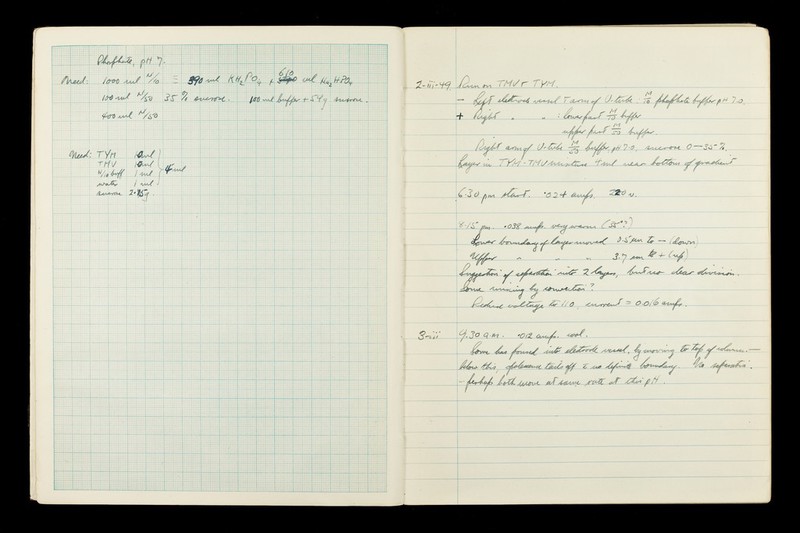 Phosphate, pH 7.
Need: 1000 ml M/10 ≡ 390 ml KH2PO4 + 610 ml Na2HPO4
100 ml M/50 35% sucrose. 100 ml buffer + 54 g sucrose.
400 ml M/50
Need: TYM 1 ml
TMV 1 ml
M/10 buff 1 ml
water 1 ml
4 ml
sucrose 2.15 g
2-iii-49 Run on TMV + TYM.
- Left electrode vessel + arm of U-tube : M/10 phosphate buffer pH 7.0
+ Right " " : lower part M/10 buffer
upper part M/50 buffer.
Right arm of U-tube M/50 buffer, pH 7.0, sucrose 0-35%.
Layer in TYM-TMV mixture 4 ml near bottom of gradient
6.30 pm start. .024 amps. 220 v.
4.15 pm. .038 amps. very warm (50°?)
Lower boundary of layer moved 0.5 cm to - (down)
Upper " " " 3.7 cm to + (up)
Suggestion of separation into 2 layers, but no clear division.
Some mixing by convection?
Reduce voltage to 110, current = 0.016 amps.
3-iii 9.30 a.m. .012 amps. cool.
Some has passed into electrode vessel, by moving to top of column. -
Below this, opalescence tails off & no definite boundary. No separation.
- perhaps both move at same rate at this pH.